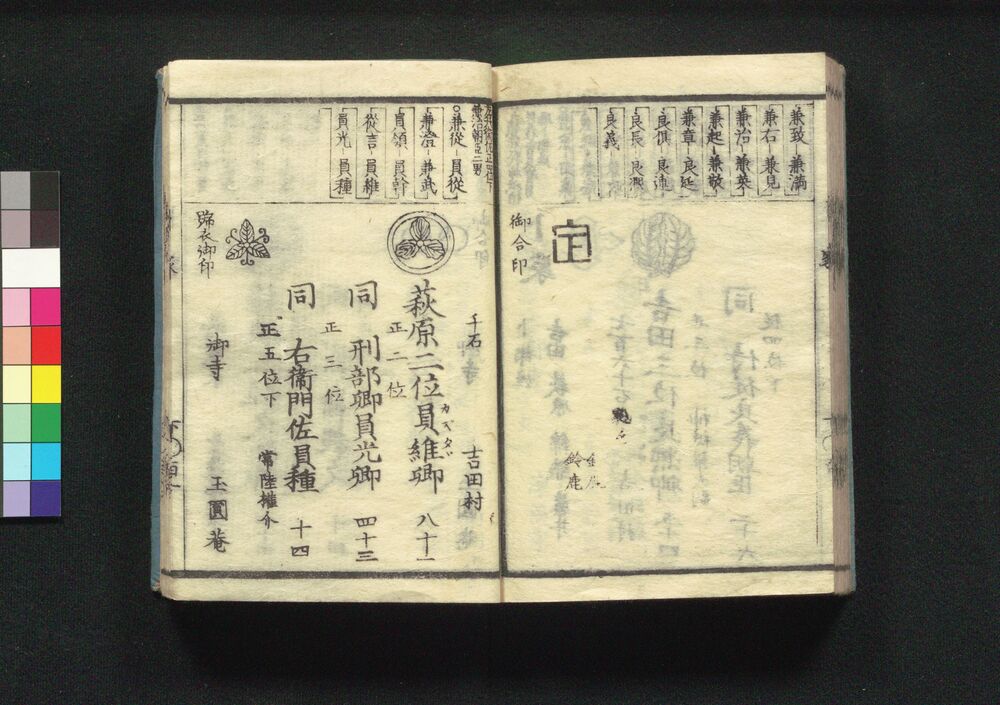 兼致 兼満
兼右 兼見
兼治 兼英
兼起 兼敬
兼章 良延
良倶 良連
良長 良凞
良義
御合印
鈴鹿
兼治朝臣二男
兼從 員從
兼澄 兼武
員領 員幹
從言 員維
員光 員種
千石
吉田村
萩原二位員維卿 八十一
正二位
同 刑部卿員光卿 四十三
正三位
同 右衞門佐員種 十四
正五位下
常陸權介
御寺 玉圓菴
歸衣御印